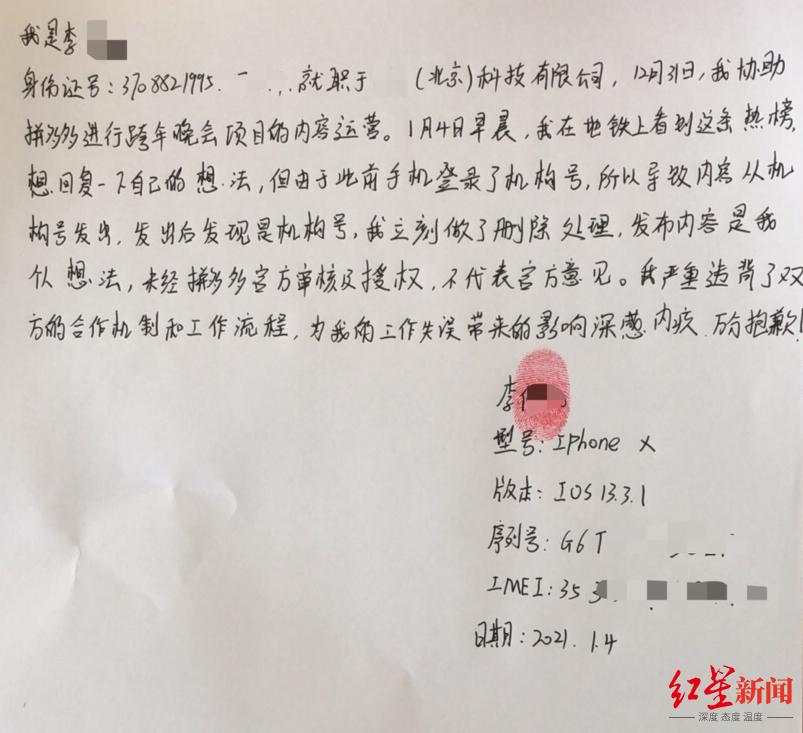 我是李
身份证号：3708821995. 就职于 （北京）科技有限公司，12月31日，我协助
拼多多进行跨年晚会项目的内容运营。1月4日早晨，我在地铁上看到这条热榜，
想回复一下自己的想法，但由于此前手机登录了机构号，所以导致内容从机
构号发出，发出后发现是机构号，我立刻做了删除处理，发布内容是我
个人想法，未经拼多多官方审核及授权，不代表官方意见。我严重违背了双
方的合作机制和工作流程，为我的工作失误带来的影响深感内疚，万分抱歉！
李
型号：IPhone X
版本：IOS 13.3.1
序列号：G6T
IMEI：35
日期：2021.1.4
红星新闻
深度 态度 温度